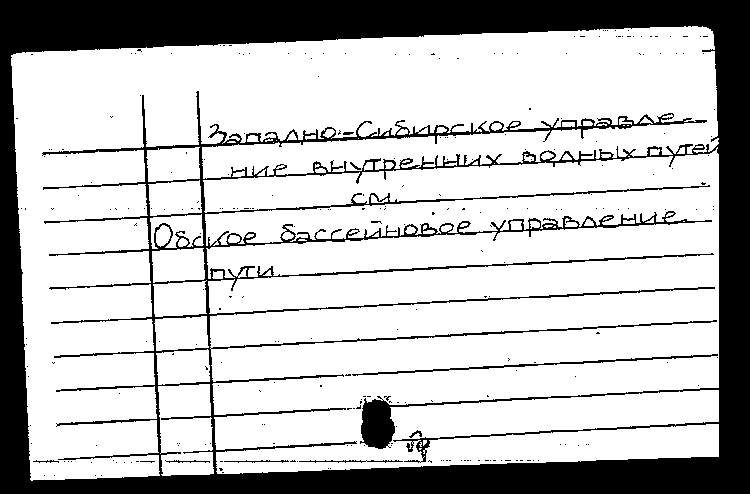 Западно-Сибирское управле-
ние внутренних водных путей
см.
Обское бассейновое управление
пути